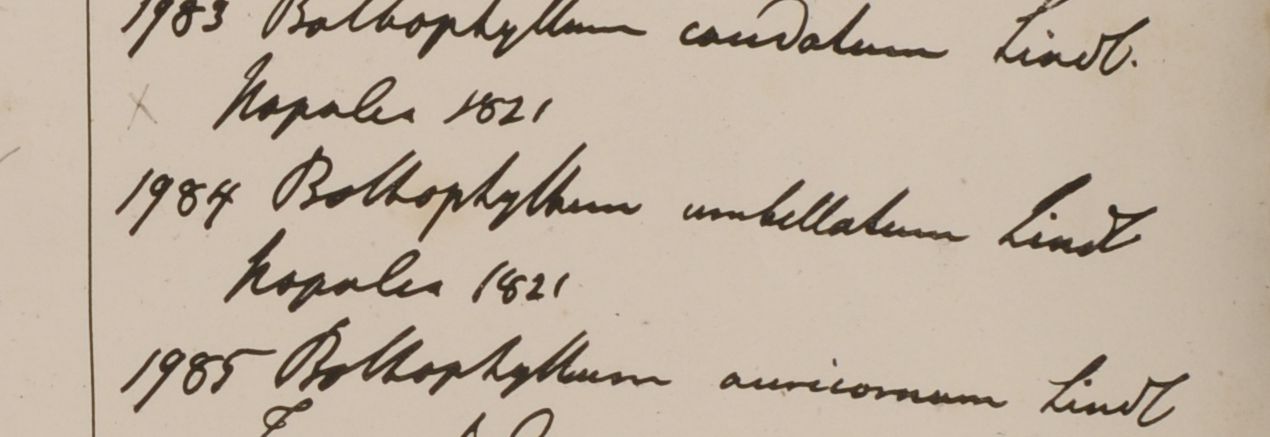 1983 Bolbophyllum caudatum Lindl.
Napalia 1821
1984 Bolbophyllum umbellatum Lindl
Napalia 1821
1985 Bolbophyllum auricomum Lindl